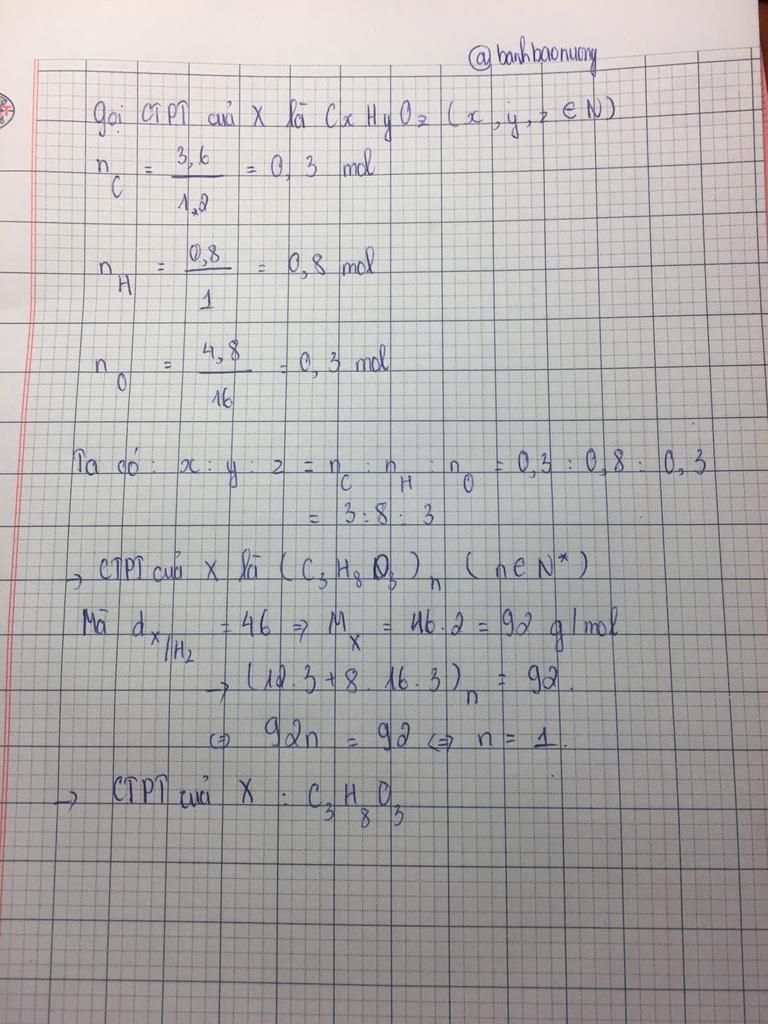 @banhbaonuong
Gọi CTPT của X là CxHyOz (x, y, z ∈ N)
n_C = 3,6/1,2 = 0,3 mol
n_H = 0,8/1 = 0,8 mol
n_O = 4,8/16 = 0,3 mol
Ta có: x : y : z = n_C : n_H : n_O = 0,3 : 0,8 : 0,3
= 3 : 8 : 3
→ CTPT của X là (C₃H₈O₃)n (n ∈ N*)
Mà d_X/H₂ = 46 ⇒ M_X = 46.2 = 92 g/mol
→ (12.3+8.16.3)n = 92.
⇔ 92n = 92 ⇔ n = 1.
→ CTPT của X : C₃H₈O₃